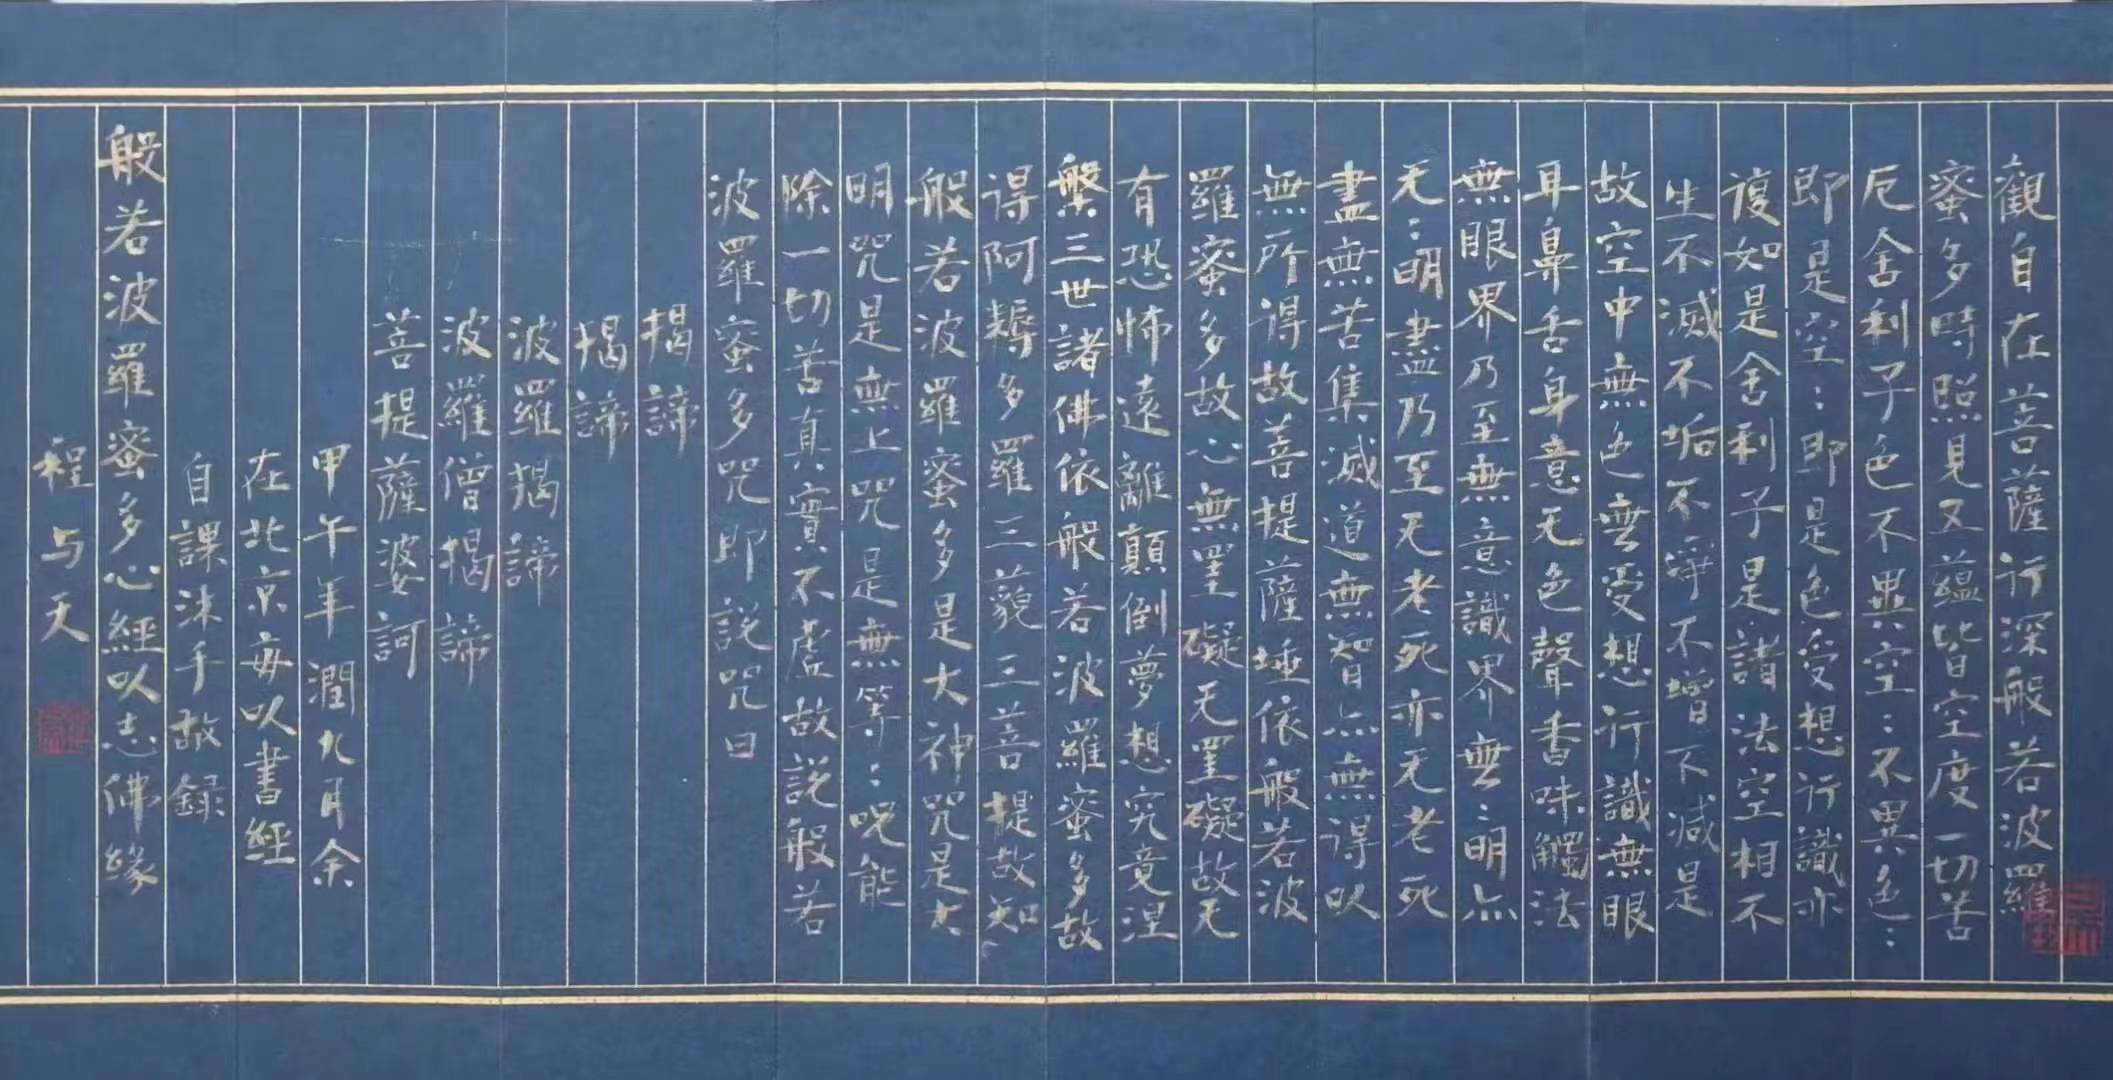 觀自在菩薩行深般若波羅
蜜多時照見五蘊皆空度一切苦
厄舍利子色不異空：不異色：
即是空：即是色受想行識亦
復如是舍利子是諸法空相不
生不滅不垢不淨不增不減是
故空中無色無受想行識無眼
耳鼻舌身意无色聲香味觸法
無眼界乃至無意識界無：明亦
无：明盡乃至无老死亦无老死
盡無苦集滅道無智亦無得以
無所得故菩提薩埵依般若波
羅蜜多故心無罣礙无罣礙故无
有恐怖遠離顛倒夢想究竟涅
槃三世諸佛依般若波羅蜜多故
得阿耨多羅三藐三菩提故知
般若波羅蜜多是大神咒是大
明咒是無上咒是無等：咒能
除一切苦真實不虛故說般若
波羅蜜多咒即說咒曰
揭諦
揭諦
波羅揭諦
波羅僧揭諦
菩提薩婆訶
甲午年潤九月余
在北京每以書經
自課沐手敬録
般若波羅蜜多心經以志佛緣
程与天